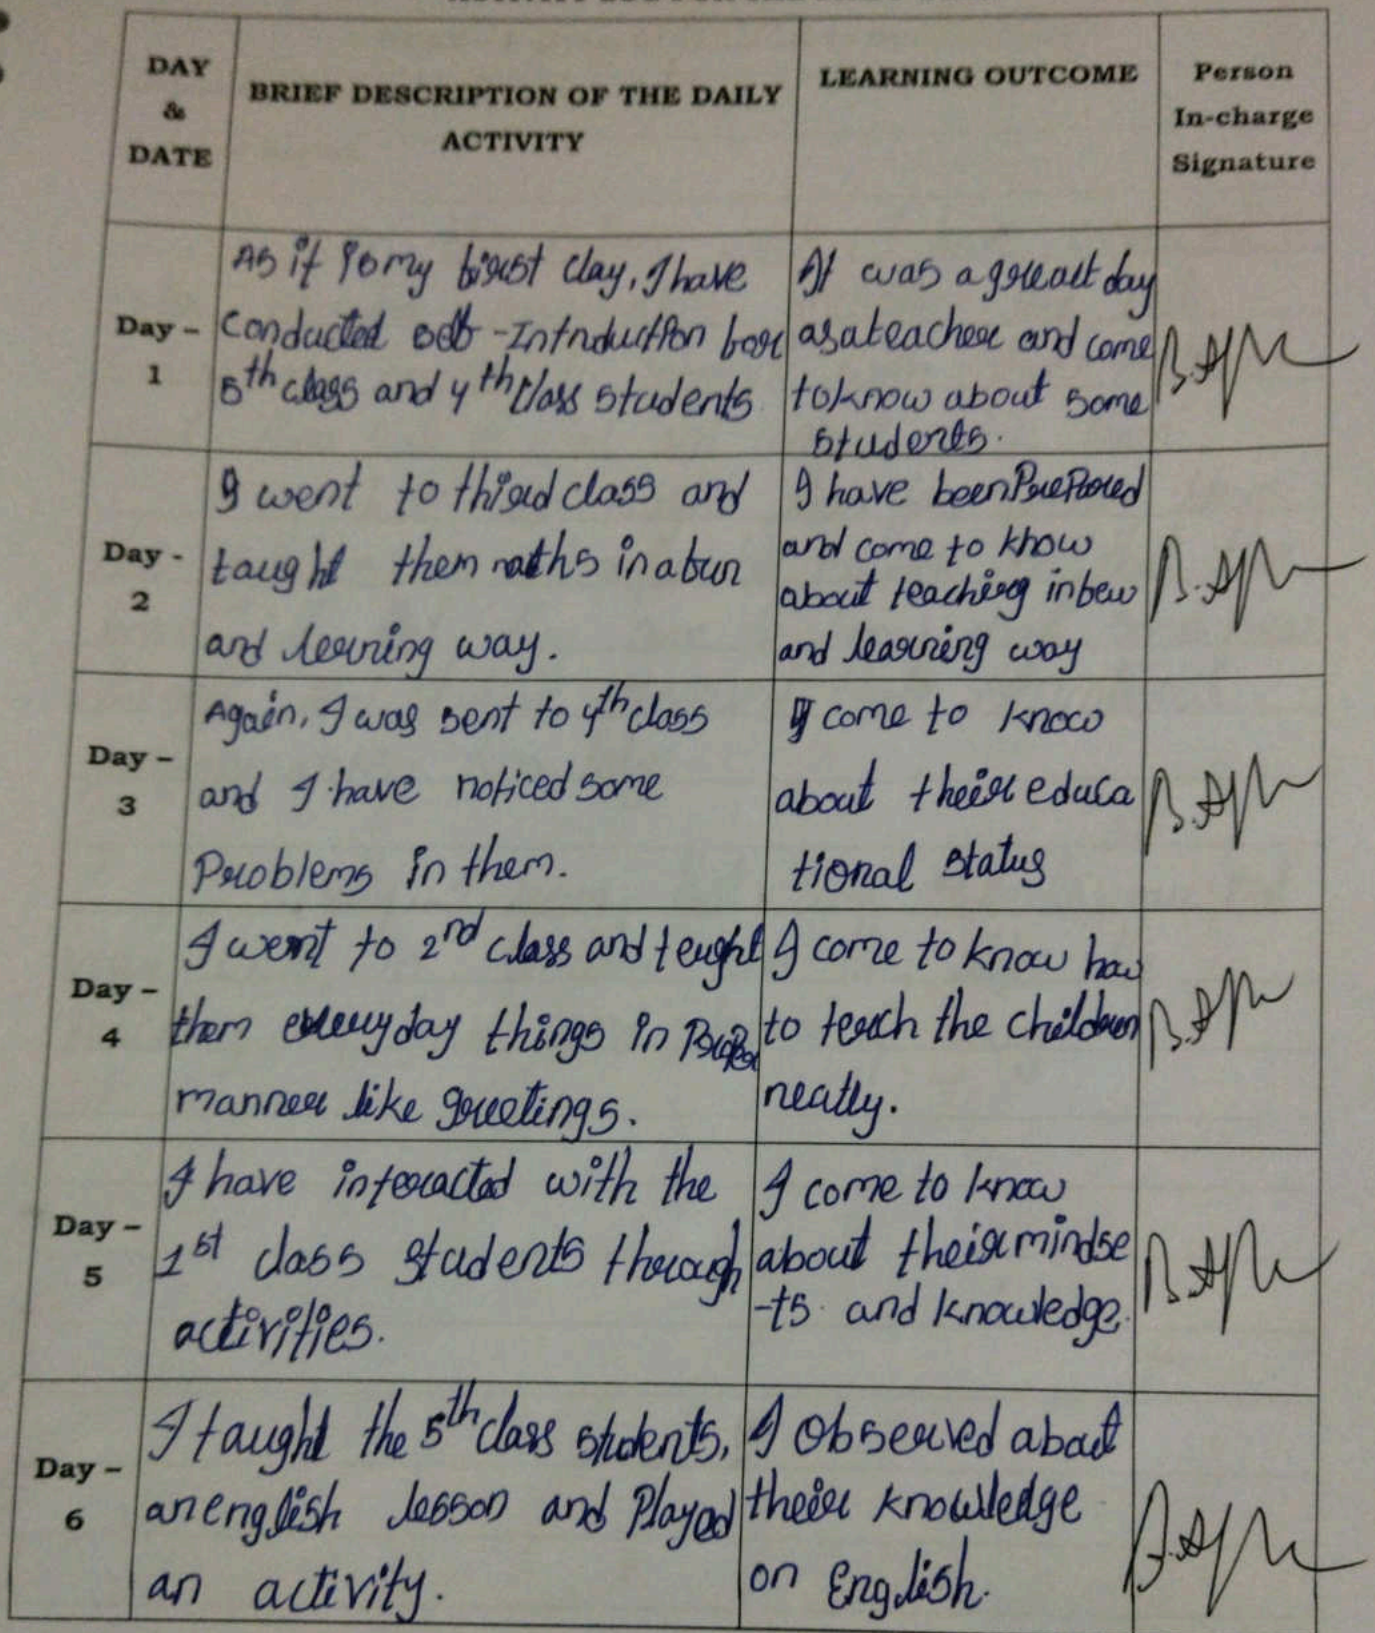 DAY
&
DATE
BRIEF DESCRIPTION OF THE DAILY
ACTIVITY
LEARNING OUTCOME
Person
In-charge
Signature
Day -
1
As it is my first day, I have
Conducted self-Introduction for
5th class and 4th class students
It was a great day
as a teacher and come
to know about some
students.
Day -
2
I went to third class and
taught them maths in a fun
and learning way.
I have been Prepared
and come to know
about teaching in few
and learning way
Day -
3
Again, I was sent to 4th class
and I have noticed some
Problems in them.
I come to know
about their educa
tional status
Day -
4
I went to 2nd class and taught
them everyday things in Proper
manner like greetings.
I come to know how
to teach the children
neatly.
Day -
5
I have interacted with the
1st class students through
activities.
I come to know
about their mindse
-ts and knowledge.
Day -
6
I taught the 5th class students,
an english lesson and Played
an activity.
I Observed about
their knowledge
on English.